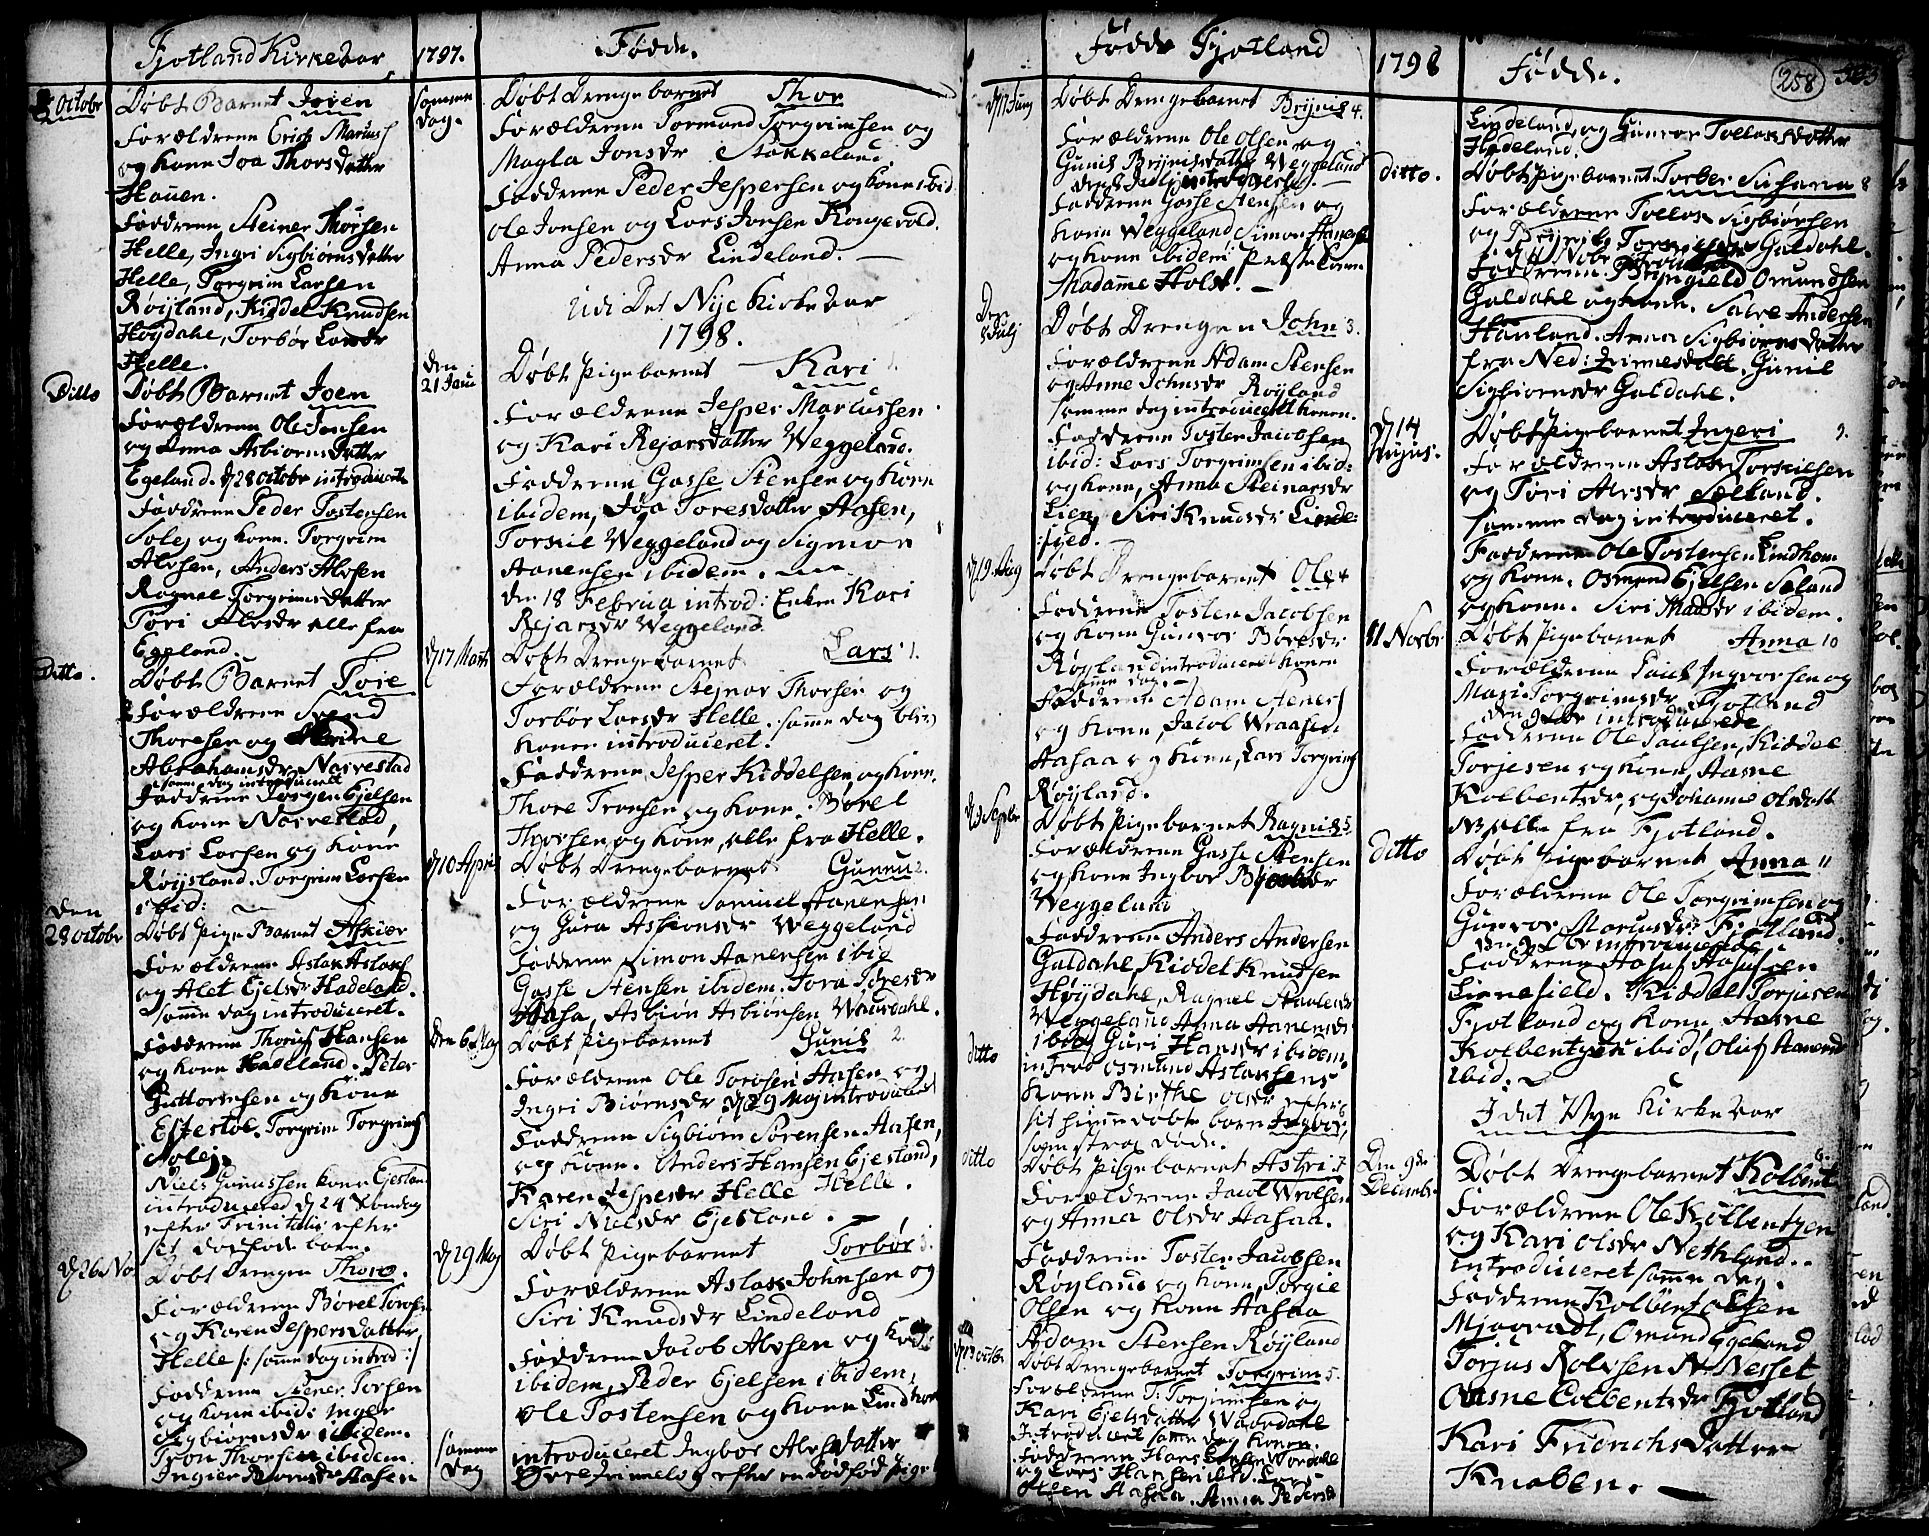 Fjotland Kirke Aar
8 Octobr
Døbt Barnet Joren
Forældrene Erich Mariuss
og Kone Joa Thorsdatter
Hauen.
Faddrene Steiner Thorsen
Helle, Ingri Sigbiørnsdatter
Helle, Torgrim Larsen
Røijland, Kiddel Knudsen
Høijdahl, Torbør Larsdr
Helle.
Ditto
Døbt Barnet Joen
Forældrene Ole Jonsen
og Anna Asbiørnsdatter
Egeland. d 28 Octobr introducert
Faddrene Peder Tostensen
Solej og Kone. Torgrim
Alvsen, Anders Alvsen
Ragnel Torgrimsdatter
Tori Alvsdr alle fra
Egeland.
Ditto.
Døbt Barnet Tore
Forældrene Svend
Thoresen og
Abrahamsdr Narvestad
samme dag introducert
Faddrene Jørgen Ejelsen
og Kone Narvestad,
Lars Larsen og Kone
Røijsland. Torgrim Larsen
ibid:
Den
28 Octobr
Døbt Pige Barnet Askier
Forældrene Aslak Aslaks
og Alet Ejelsdr Hadeland.
samme dag introduceret.
Faddrene Thoruf Hansen
og Kone Hadeland. Peter
Guttormsen og Kone
Eftestøl. Torgrim Torgrims
Solej.
Niels Gunussen Kone Ejesland
introduceret d 24 Søndag
efter Trinitatis efter
sit dødfødte barn.
d 26 No
Døbt Drengen Thore.
Forældrene Børel Torsen
og Karen Jespersdatter,
Helle /: samme dag introd :/
Faddrene Stener Torsen
og Kone ibid: Inger
Sigbiørnsdr ibidem.
Tron Thorsen ibidem.
Ingier Aasen
1797.
Fødde.
Samme
dag.
Døbt Drengebarnet Thor
Forældrene Tormond Torgrimsen og
Magla Jonsdr Stakkeland
Faddrene Peder Jespersen og Kone ibid
Ole Jonsen og Lars Jonsen Kongevold.
Anna Pedersdr Lindeland.
Udi Det Nye Kirke Aar
1798.
Den
21 Janu
Døbt Pigebarnet Kari 1.
Forældrene Jesper Marcussen
og Kari Rejarsdatter Weggeland.
Faddrene Gasse Stensen og Kone
ibidem, Joa Toresdatter Aasen,
Torkil Weggeland og Sigmon
Aanensen ibidem.
Den 18 Februa introd: Enken Kari
Rejarsdr Weggeland.
d 17 Marti
Døbt Drengebarnet Lars 1.
Forældrene Stejnar Thorsen og
Torbør Larsdr Helle. samme dag blev
Konen introduceret.
Faddrene Jesper Kiddelsen og Kone,
Thore Tronsen og Kone. Børel
Thorsen og Kone, alle fra Helle.
d 10 April
Døbt Drengebarnet Gunnu 2.
Forældrene Samuel Aanensen
og Gura Askionsdr Weggeland
Faddrene Simon Aanensen ibid
Gasse Stensen ibidem. Tora Toresdr
Aasa, Asbiøn Asbiønsen Waardahl.
Den 6 Maj
Døbt Pigebarnet Gunild 2.
Forældrene Ole Torosen Aasen og
Ingri Biørnsdr d 29 Maj introduceret
Faddrene Sigbiørn Sørensen Aasen,
og Kone. Anders Hansen Ejesland,
Karen Jespersdr Helle Helle.
Siri Nielsdr Ejesland.
d 29 Maj
Døbt Pigebarnet Torbør 3.
Forældrene Aslak Johnsen og
Siri Knudsdr Lindeland
Faddrene Jacob Alvsen og Kone
ibidem, Peder Ejelsen ibidem,
Ole Tostensen og Kone Lindhom
samme
Dag
introduceret Ingbor Alvsdatter
efter en dødfød pige
Fødde Fjotland
d 17 Juny
Døbt Drengebarnet Brynild 4.
Forældrene Ole Olsen og
Gunild Brynildsdatter Weggeland
den 8 Julij introduceret.
Faddrene Gasse Stensen og
Kone Weggeland Simon Aanensen
og Kone ibidem Præstekone
Madamme Holst.
Den
8 Julij
Døbt Drengen John 3.
Forældrene Adam Stensen
og Anne Johnsdr Røyland
samme dag introducert Konen.
Faddrene Tosten Jacobsen
ibid: Lars Torgrimsen ibid:
og Kone, Anna Steinarsdr
Lien, Siri Knudsdr Linde:
fjed.
d 19 Aug
Døbt Drengebarnet Ole 4
Forældrene Tosten Jacobsen
og Kone Gunvor Børesdr
Røyland introduceret Konen
samme dag.
Faddrene Adam Steners
og Kone, Jacob Wraasen
Aasaa og Kone, Lars Torgrims
Røyland.
d 3 Septbr
Døbt Pigebarnet Ragnild 5.
Forældrene Gasse Stensen
og Kone Ingbor
Weggeland
Faddrene Anders Andersen
Galdahl, Kiddel Knudsen
Høijdahl, Ragnel Staalesdr
Weggeland Anna Aanensdr
ibid Guri Hansdr ibidem.
ditto
introd Osmund Aslaksens
Kone Birthe Olsdr efter
sit hjemmedøbte barn Ingbor,
som strax døde.
ditto
Døbt Pigebarnet Astri 7
Forældrene Jacob Wrolsen
og Anna Olsdr Aasaa.
Faddrene Tosten Jacobsen
Røyland og Kone, Torgie
Olsen og Kone Aasaa
Adam Stensen Røyland
d 13 Octb
Døbt Drengebarnet Torgrim 5.
Forældrene T: Torgrimsen og
Kari Ejelsdatter Waardahl
Introduceret samme dag Konen
Faddrene Hans Larsen Wordahl
og Lars Hansen ibid. Lars
Olsen Aasaa. Anna Pedersdr
1798
Fødde.
258
Lindeland, og Gunvor Tollaksdatter
Hadeland.
ditto.
Døbt Pigebarnet Torber Susanna 8
Forældrene Tollak Sigbiørnsen
og Brynild Torkildsdr Galdahl.
d 4 Nobr introduceret
Faddrene. Bringield Omundsen
Galdahl og Kone. Salve Andersen
Haneland. Anna Sigbiørnsdatter
fra Ned: Jrimesdall, Gunil
Sigbiornsdr Galdahl.
d 14
Døbt Pigebarnet Ingeri 9.
Forældrene Aslak Torkilsen
og Tori Alvsdr Sælland.
samme dag introduceret.
Faddrene Ole Tostensen Lindhom
og Kone. Osmond Ejelsen Sæland
og Kone. Siri Madsdr ibidem.
11 Novbr
Døbt Pigebarnet Anna 10
Forældrene Povel Ingvorsen og
Mari Torgrimsdr Fjotland
den introducerede
Faddrene Ole Paulsen, Kiddel
Torjesen og Kone, Aasne
Kolbentsdr, og Johanne Olsdatt
alle fra Fjotland.
ditto
Døbt Pigebarnet Anna 11
Forældrene Ole Torgrimsen og
Gunvor Marcusdr Fjotland.
den introducerede
Faddrene Aasuf Aasufsen
Linnefield. Kiddel Torjusen
Fjotland og Kone, Aasne
Kolbentsdr ibid, Oluf Aanensen
ibid.
I det Nye Kirke Aar
Den 9de
Decembr.
Døbt Drengebarnet Kolbent 6.
Forældrene Ole Kolbentsen
og Kari Olsdr Nethland..
introduceret samme Dag.
Faddrene Kolbent Olsen
Mjaavadt, Omund Egeland
Torjus Rolvsen N. Nesset
Aasne Colbentsdr Fjotland
Kari Fridrichsdatter
Knaben.